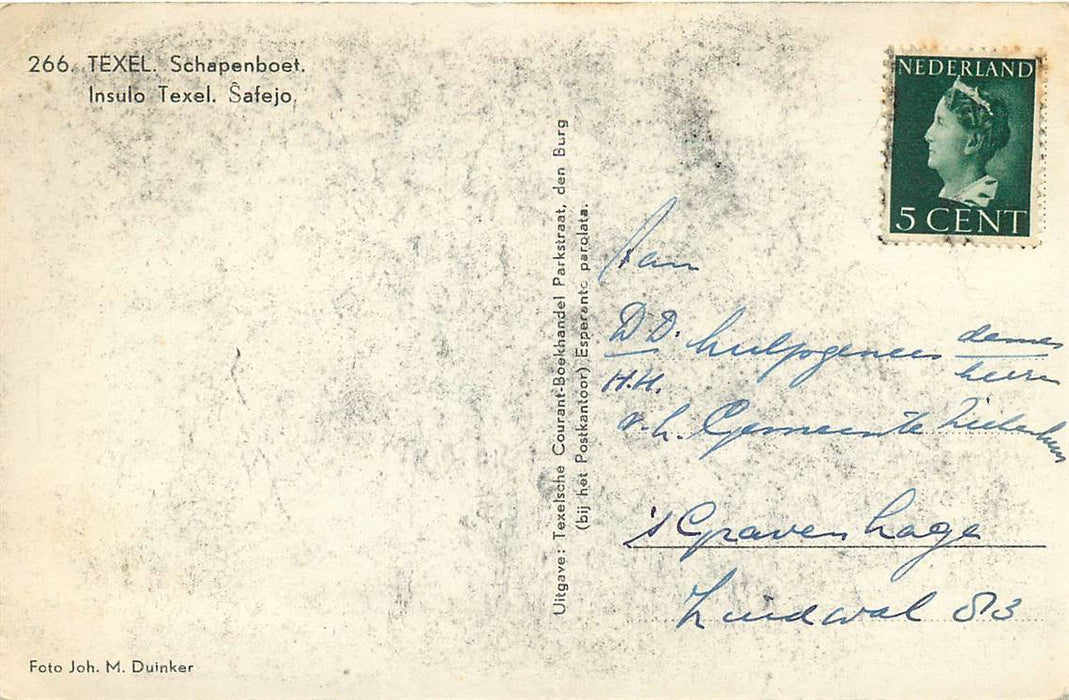 266. TEXEL. Schapenboet.
Insulo Texel. Ŝafejo.
NEDERLAND
5 CENT
Uitgave: Texelsche Courant-Boekhandel Parkstraat, den Burg
(bij het Postkantoor) Esperanto parolata.
Aan
D.D. hulpgenees dames
H.H. heeren
v.h. Gemeente Ziekenhuis
's Gravenhage
Zuidwal 83
Foto Joh. M. Duinker